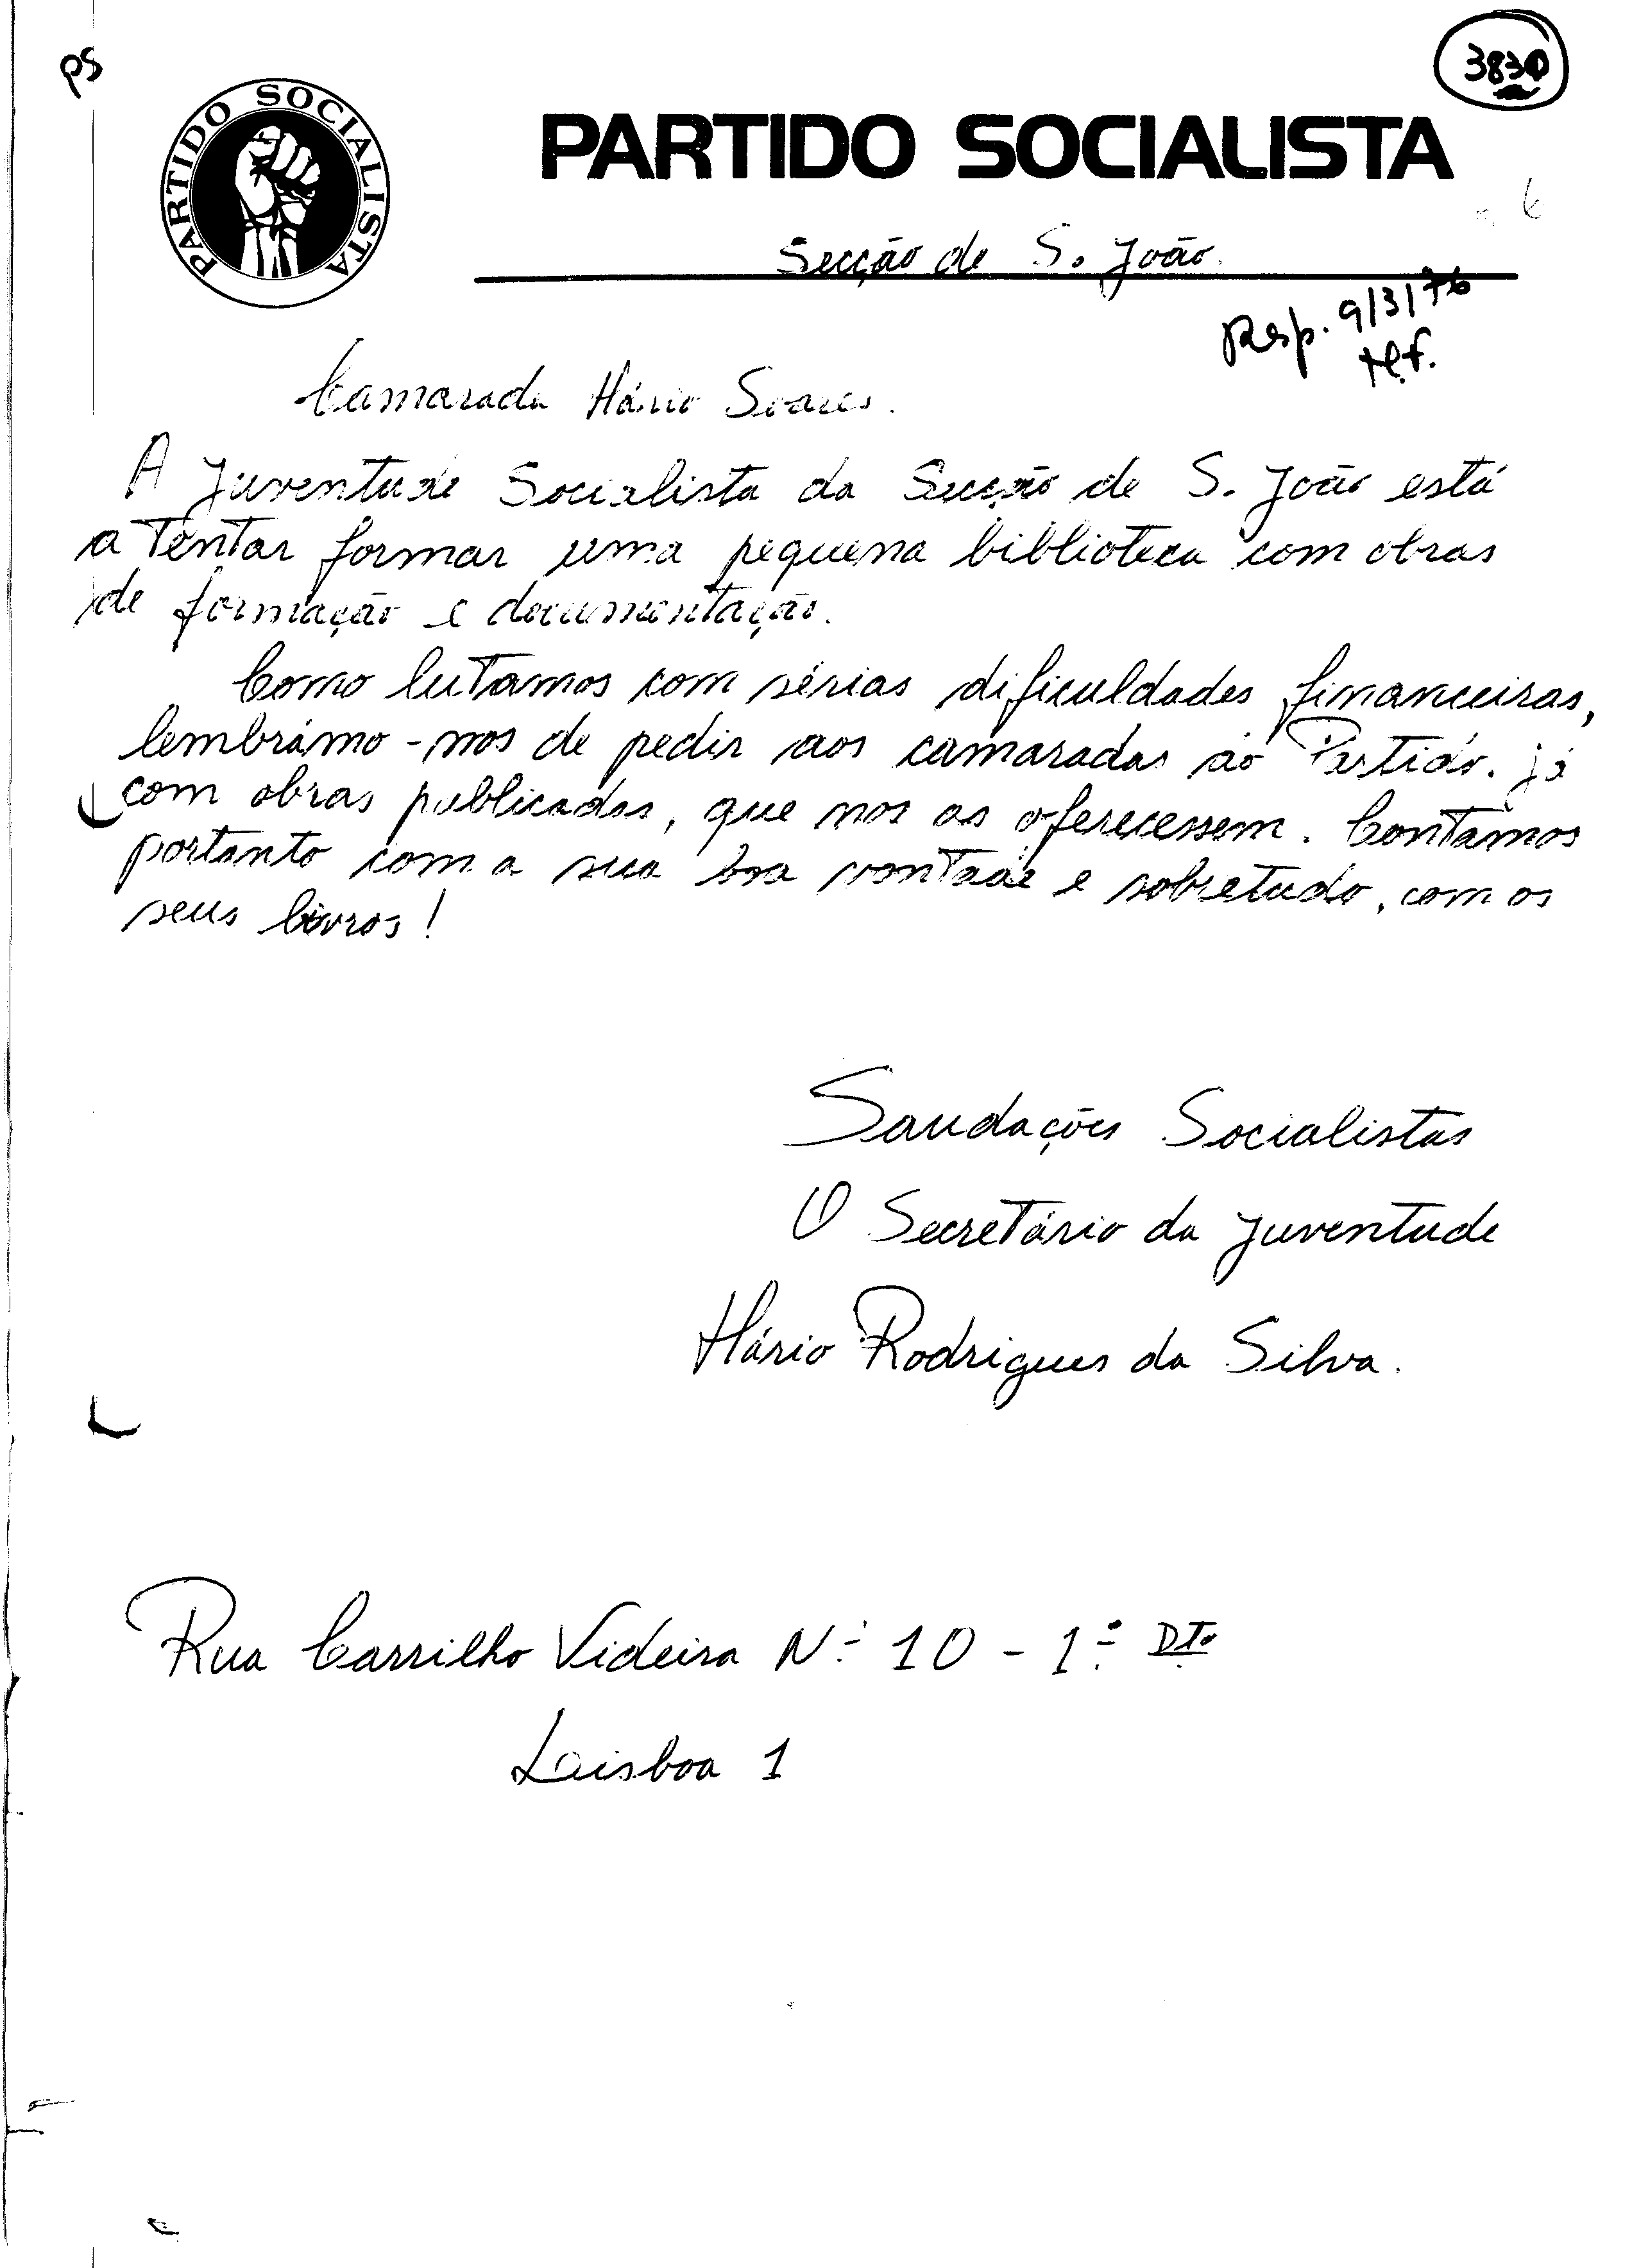 PS
3830
PARTIDO SOCIALISTA
PARTIDO SOCIALISTA
Secção de S. João.
Resp. 9/3/76
Camarada Mário Soares.
A Juventude Socialista da Secção de S. João está
a tentar formar uma pequena biblioteca com obras
de formação e documentação.
Como lutamos com sérias dificuldades financeiras,
lembrámo-nos de pedir aos camaradas do Partido. já
com obras publicadas, que nos as oferecessem. Contamos
portanto com a sua boa vontade e sobretudo, com os
seus livros!
Saudações Socialistas
O Secretário da Juventude
Mário Rodrigues da Silva.
Rua Carrilho Videira Nº 10 - 1º Dto
Lisboa 1